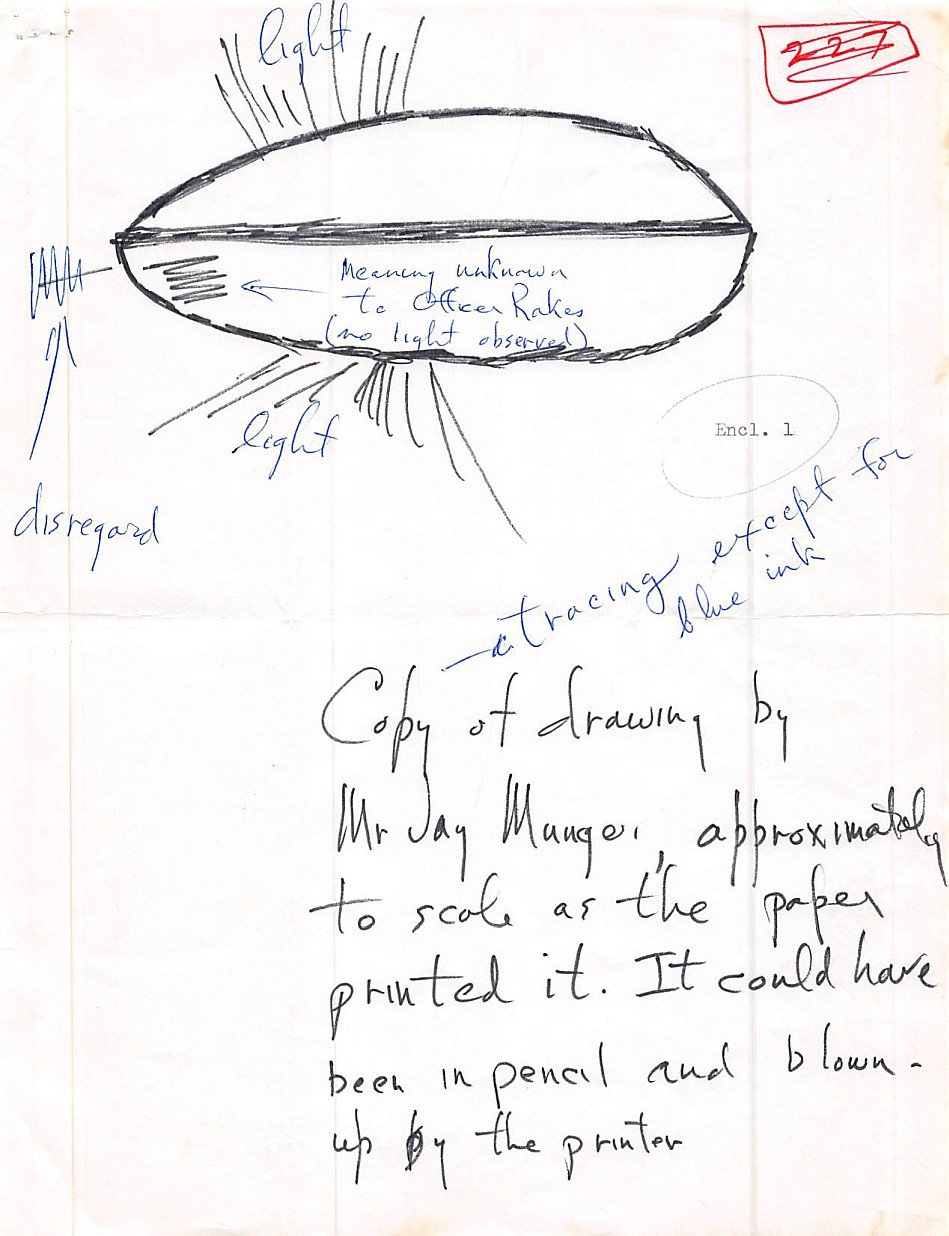 light
227
Meaning unknown
to Officer Rakes
(no light observed)
light
Encl. 1
disregard
a tracing except for
blue ink
Copy of drawing by
Mr Jay Munger, approximately
to scale as the paper
printed it. It could have
been in pencil and blown-
up by the printer